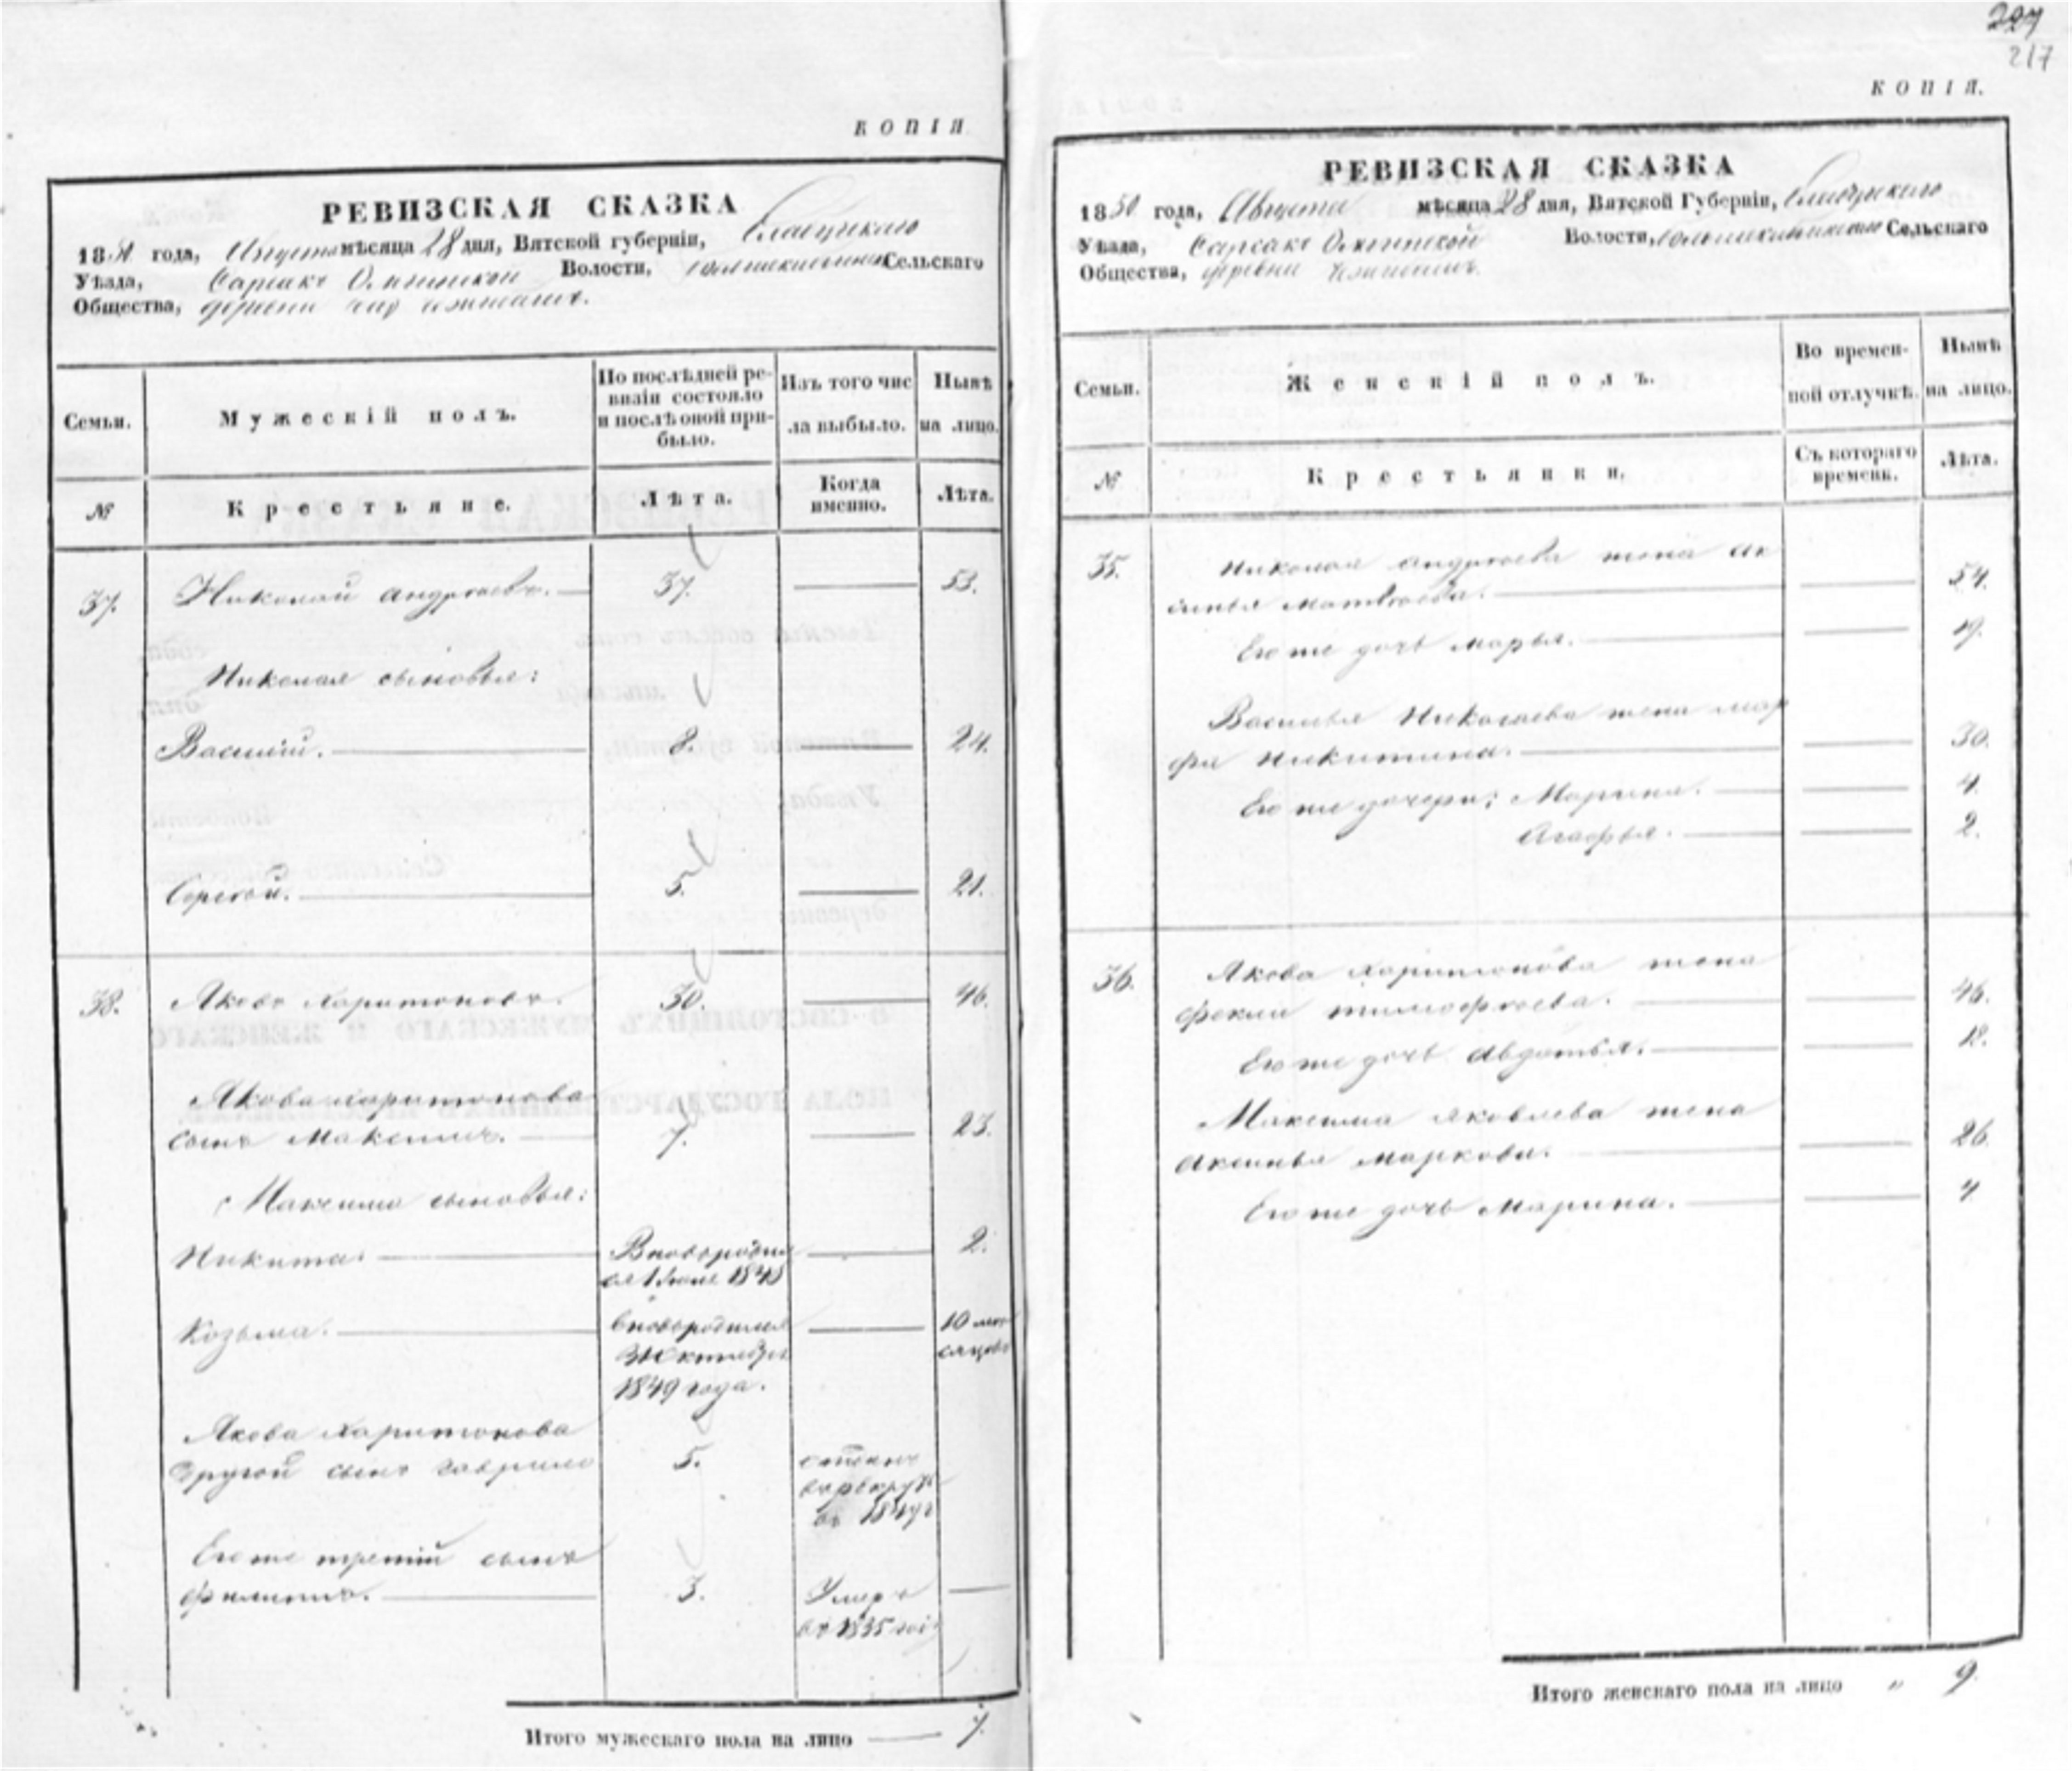 КОПІЯ
РЕВИЗСКАЯ СКАЗКА
1850 года, Августа мѣсяца 28 дня, Вятской губерніи,
Уѣзда, Волости, Сельскаго
Общества, деревни
Семьи.
Мужескій полъ.
По послѣдней ре-
визіи состояло
и послѣ оной при-
было.
Изъ того чис
ла выбыло.
Нынѣ
на лицо.
№
Крестьяне.
Лѣта.
Когда
именно.
Лѣта.
37. Николай Андреевъ. 37. 53.
Николая сыновья:
Василій. 8. 24.
Сергей. 5. 21.
38. Яковъ Харитоновъ. 30. 46.
Якова Харитонова
сынъ Максимъ. 7. 23.
Максима сыновья:
Никита. Вновьродил 2.
ся 1848
Козьма. вновьродился 10 ме
Октября сяцовъ
1849 года.
Якова Харитонова
другой сынъ Гаврило 5.
въ рекруты
въ
Его же третій сынъ
Филиппъ. 3. Умеръ
въ 1835 году
Итого мужескаго пола на лицо 7.
227
217
КОПІЯ.
РЕВИЗСКАЯ СКАЗКА
1850 года, Августа мѣсяца 28 дня, Вятской Губерніи,
Уѣзда, Волости, Сельскаго
Общества, деревни
Семьи.
Женскій полъ.
Во времен-
ной отлучкѣ.
Нынѣ
на лицо.
№
Крестьянки.
Съ котораго
времени.
Лѣта.
35. Николая Андреева жена Ак
синья Матвѣева. 54.
Его же дочь Марья. 19.
Василья Николаева жена Мар
фа Никитина. 30.
Его же дочери: Марина. 4.
Агафья. 2.
36. Якова Харитонова жена
Фекла Тимофеева. 46.
Его же дочь Авдотья. 12.
Максима Яковлева жена
Аксинья Маркова. 26.
Его же дочь Марина. 4
Итого женскаго пола на лицо " 9.